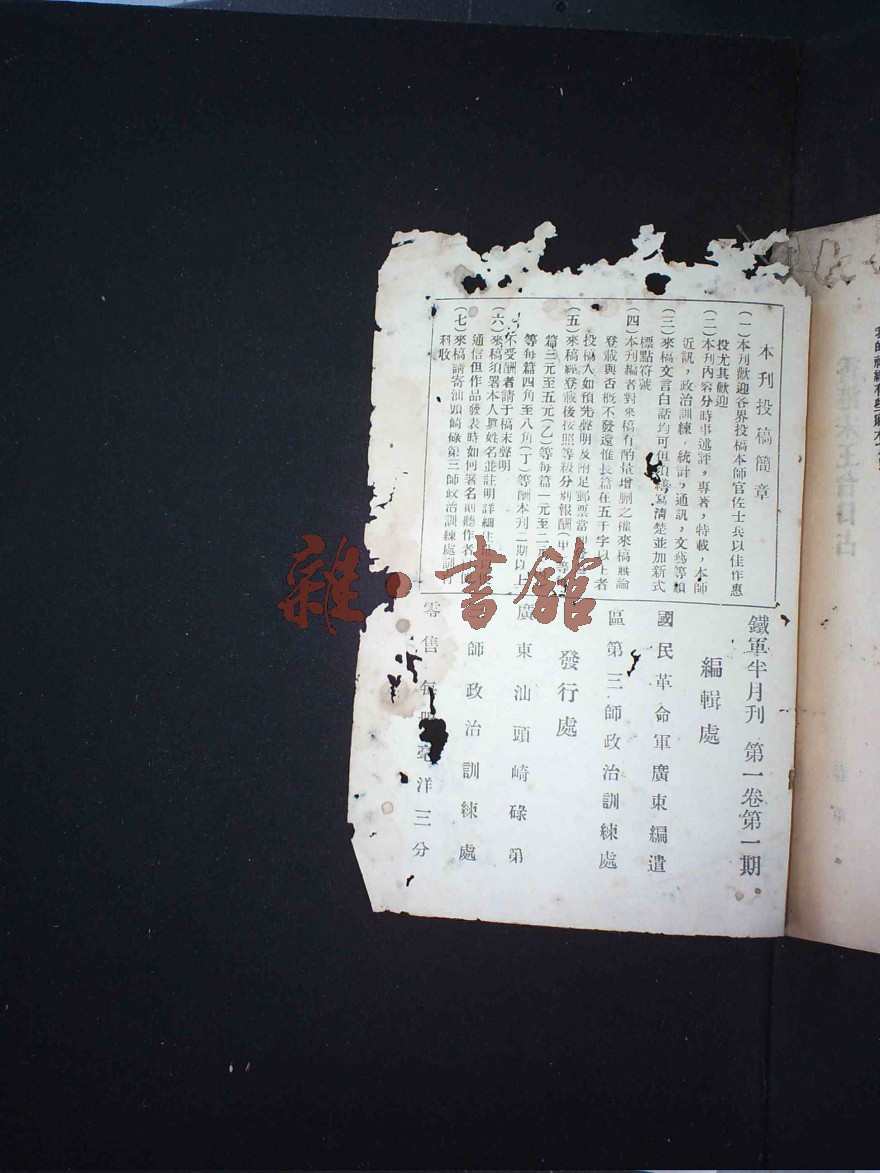 本刊投稿簡章
(一)本刊歡迎各界投稿本師官佐士兵以佳作惠
投尤其歡迎
(二)本刊內容分時事述評,專著,特載,本師
近訊,政治訓練,統計,通訊,文藝等類
(三)來稿文言白話均可但須繕寫清楚並加新式
標點符號
(四)本刊編者對來稿有酌量增刪之權來稿無論
登載與否概不發還惟長篇在五千字以上者
投稿人如預先聲明及附足郵票當
(五)來稿經登載後按照等級分別報酬(甲)等
篇三元至五元(乙)等每篇一元至二元
等每篇四角至八角(丁)等酬本刊二期以上
不受酬者請于稿末聲明
(六)來稿須署本人眞姓名並註明詳細住
通信但作品發表時如何署名則聽作者
(七)來稿請寄汕頭崎碌第三師政治訓練處訓
科收
鐵軍半月刊 第一卷第一期
編輯處
國民革命軍廣東編遣
區第三師政治訓練處
發行處
廣東汕頭崎碌第
師政治訓練處
零售每 毫洋三分
雜·書館